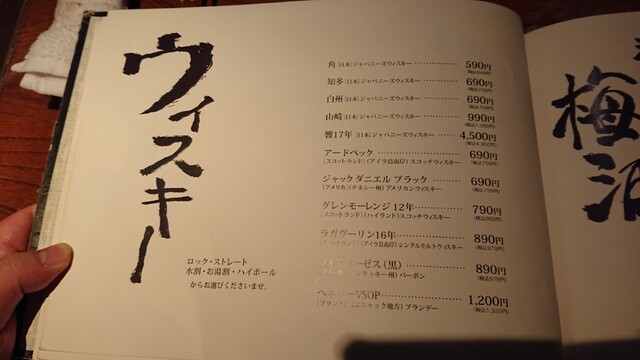 ウィスキー
ロック・ストレート
水割・お湯割・ハイボール
からお選びくださいませ。
角 [日本] ジャパニーズウィスキー 590円
(税込649円)
知多 [日本] ジャパニーズウィスキー 690円
(税込759円)
白州 [日本] ジャパニーズウィスキー 690円
(税込759円)
山崎 [日本] ジャパニーズウィスキー 990円
響17年 [日本] ジャパニーズウィスキー 4,500円
(税込4,950円)
アードベック 690円
[スコットランド] (アイラ島南岸) スコッチウィスキー (税込759円)
ジャック ダニエル ブラック 690円
[アメリカ] (テネシー州) アメリカンウィスキー (税込759円)
グレンモーレンジ 12年 790円
[スコットランド] (ハイランド) スコッチウィスキー (税込869円)
ラガヴーリン16年 890円
(アイラ島南岸) シングルモルトウィスキー (税込979円)
ーゼス (黒) 890円
バーボン (税込979円)
VSOP 1,200円
[フランス] (コニャック地方) ブランデー (税込1,320円)
梅酒